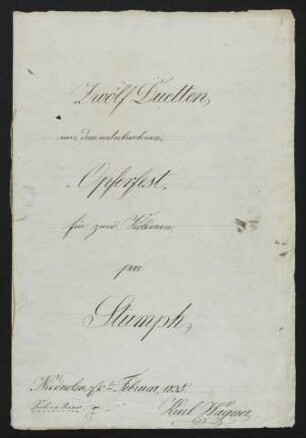 Zwölf Duetten,
aus dem unterbrochenen
Opferfest.
für zwei Violinen
par
Stumpf,
Februar, 1835.
Karl Wagner